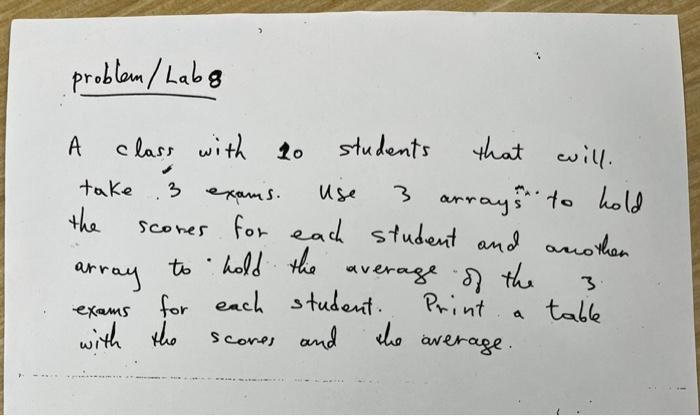 problem/Lab 8
A class with 10 students that will.
take 3 exams. Use 3 arrays to hold
the scores for each student and another
array to hold the average of the 3
exams for each student. Print a table
with the scores and the average.